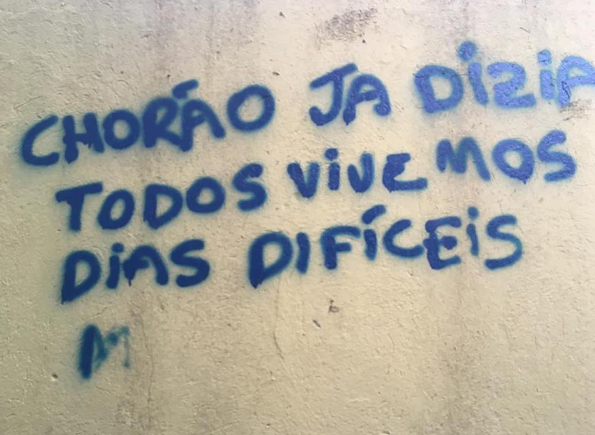 CHORÃO JA DIZIA
TODOS VIVEMOS
DIAS DIFÍCEIS